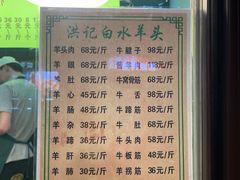 洪记白水羊头
羊头肉 68元/斤 牛腱子 98元/斤
羊眼 68元/斤 酱羊肉 158元/斤
羊肚 68元/斤 牛窝骨筋 108元/斤
羊心 58元/斤 牛舌 98元/斤
羊肠 48元/斤 牛蹄筋 58元/斤
羊杂 38元/斤 牛肚 58元/斤
羊蹄 38元/斤 牛头肉 58元/斤
羊肝 36元/斤 牛板筋 48元/斤
羊肺 30元/斤 羊拐筋 36元/斤